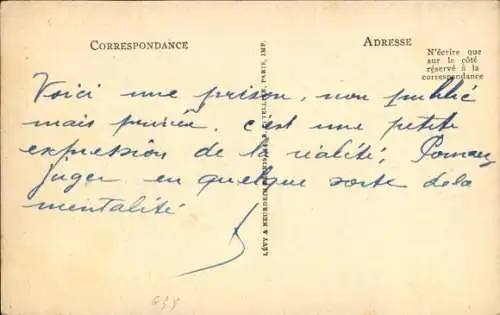 CORRESPONDANCE
ADRESSE
N'écrire que
sur le côté
réservé à la
correspondance
Voici une prison, non public
mais privée. c'est une petite
expression de la réalité,
juger en quelque sorte de la
mentalité
LÉVY & NEURDEIN RÉUNIS, PARIS, IMP.